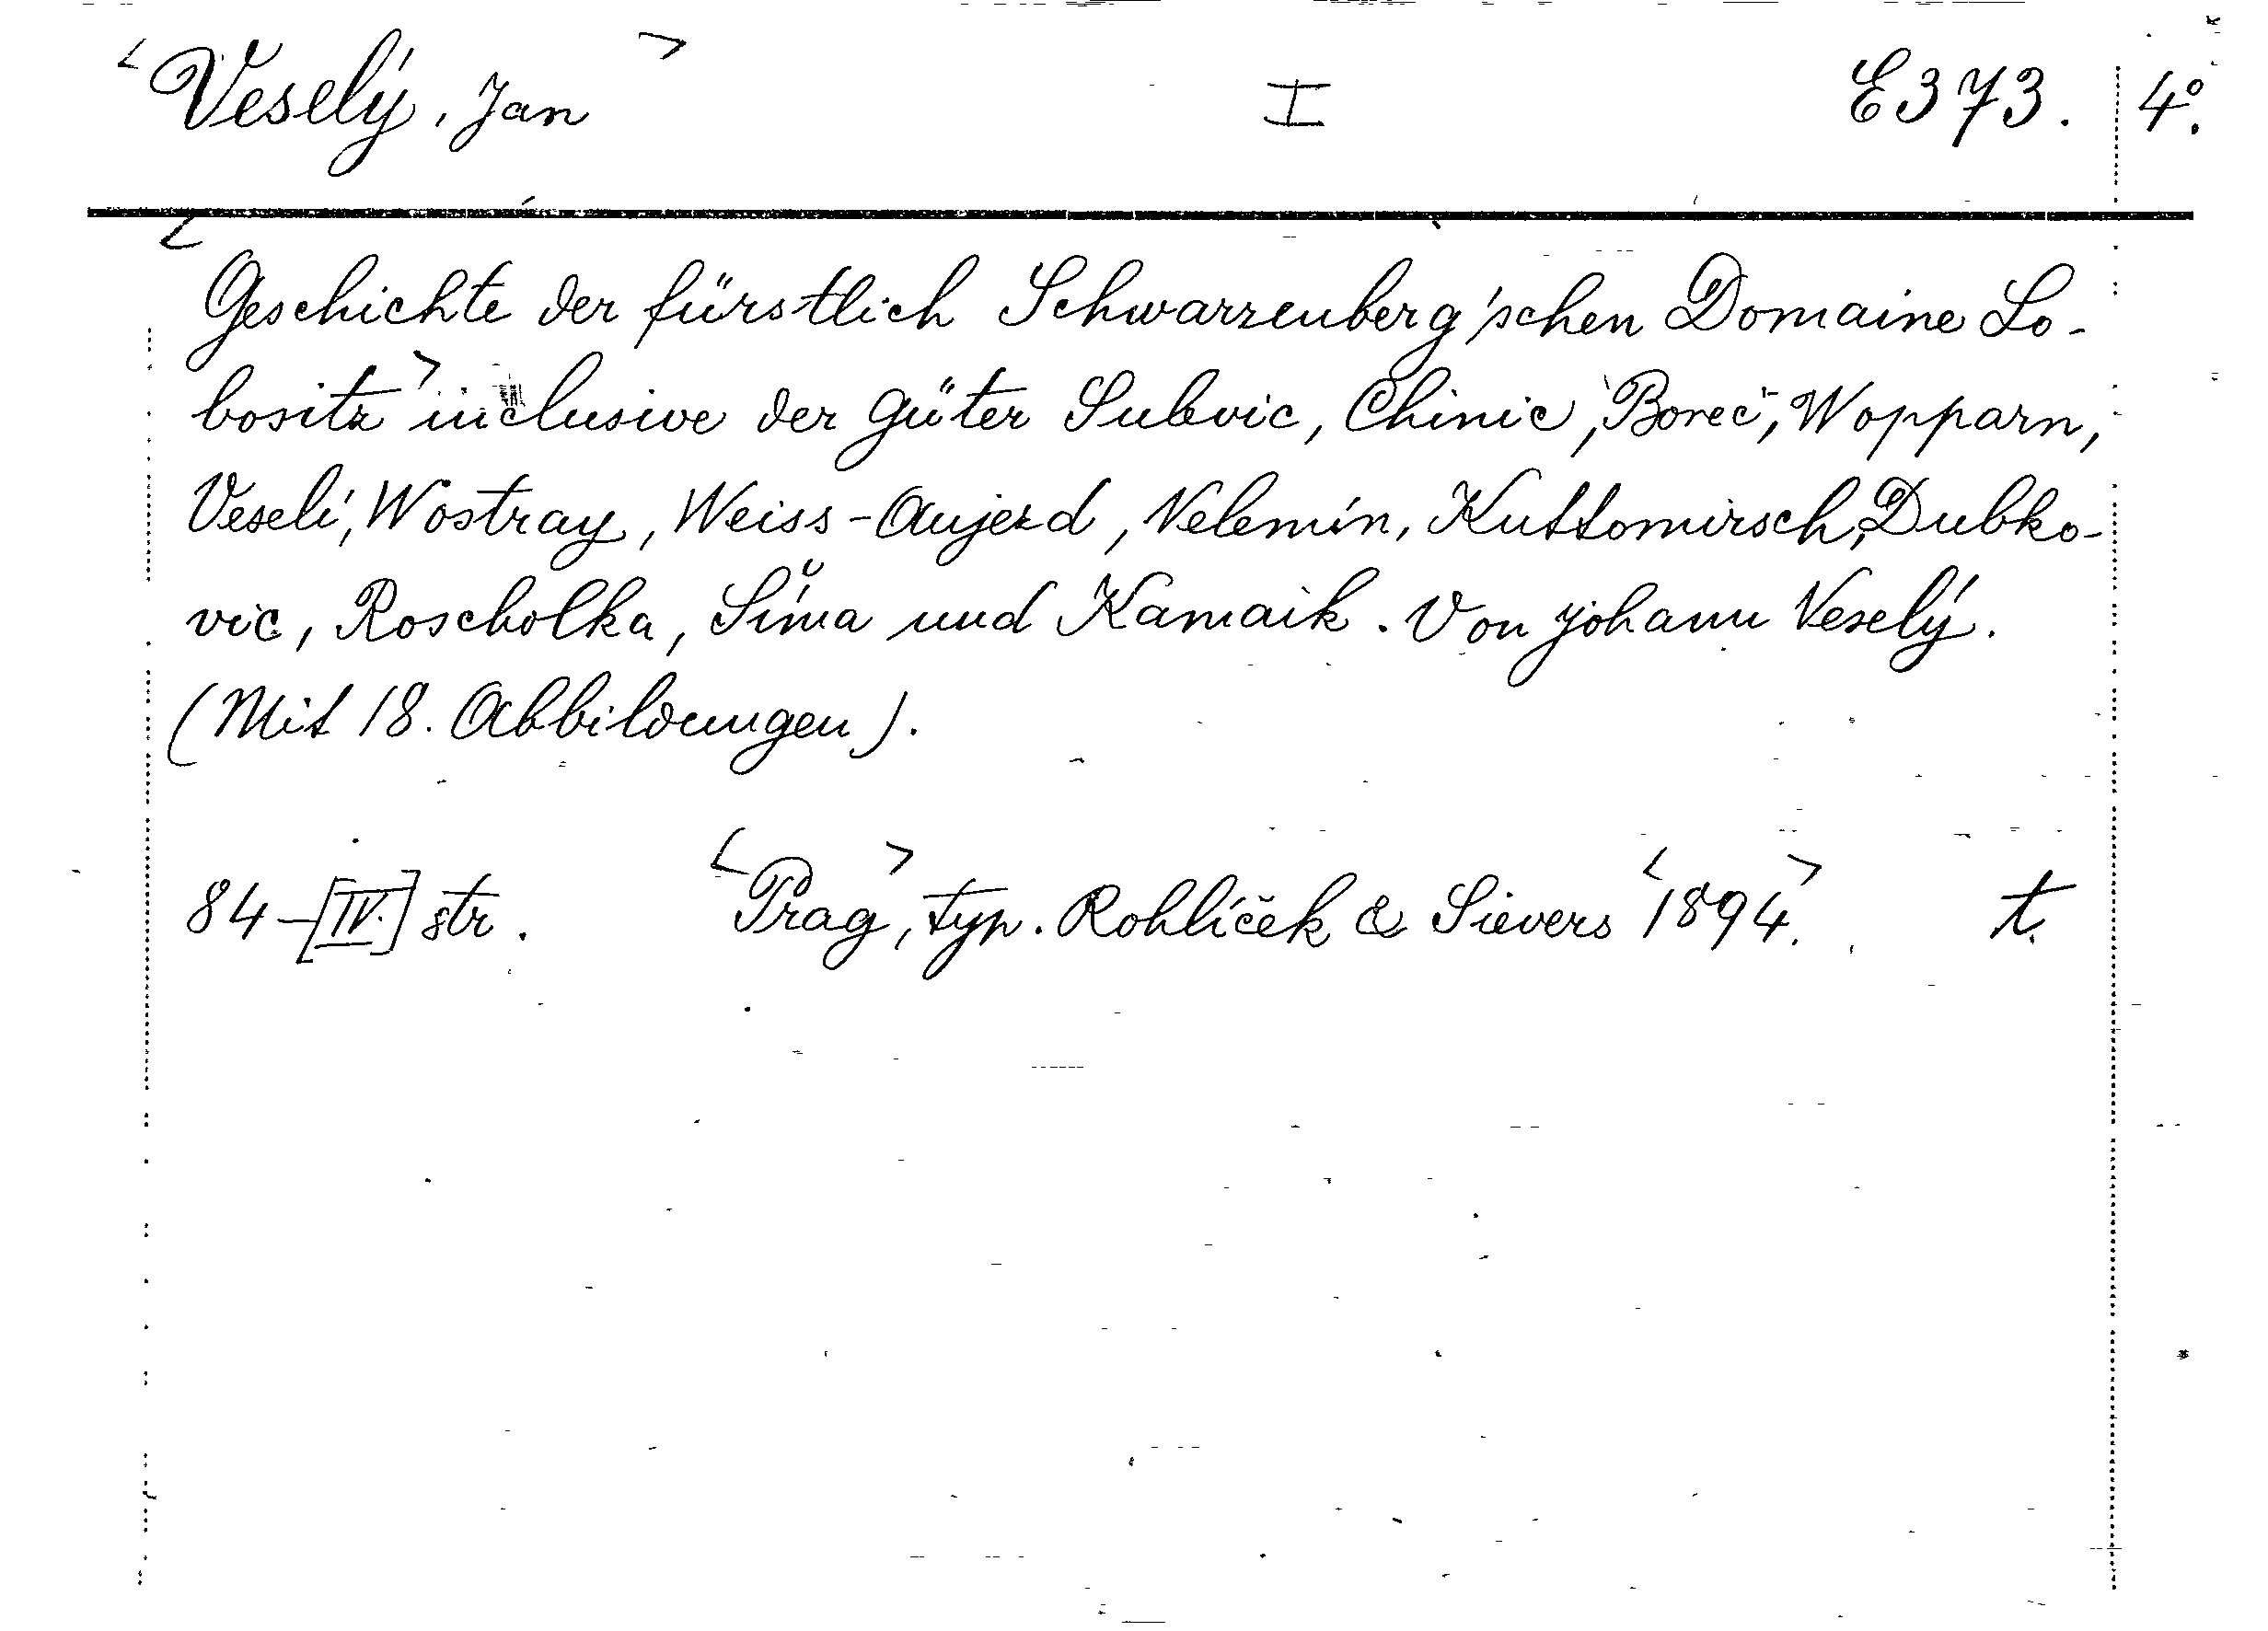 <Veselý, Jan> I E373. 4°.
<Geschichte der fürstlich Schwarzenberg'schen Domaine Lo-
bositz> inclusive der Güter Sulevic, Chinic, Boreč, Wopparn,
Veselí, Wostray, Weiss-Aujezd, Velemín, Kuttomirsch, Dubko-
vic, Roscholka, Šíma und Kamaik. Von Johann Veselý.
(Mit 18. Abbildungen).
84-[IV.] str. <Prag>, typ. Rohlíček & Sievers <1894>. t.